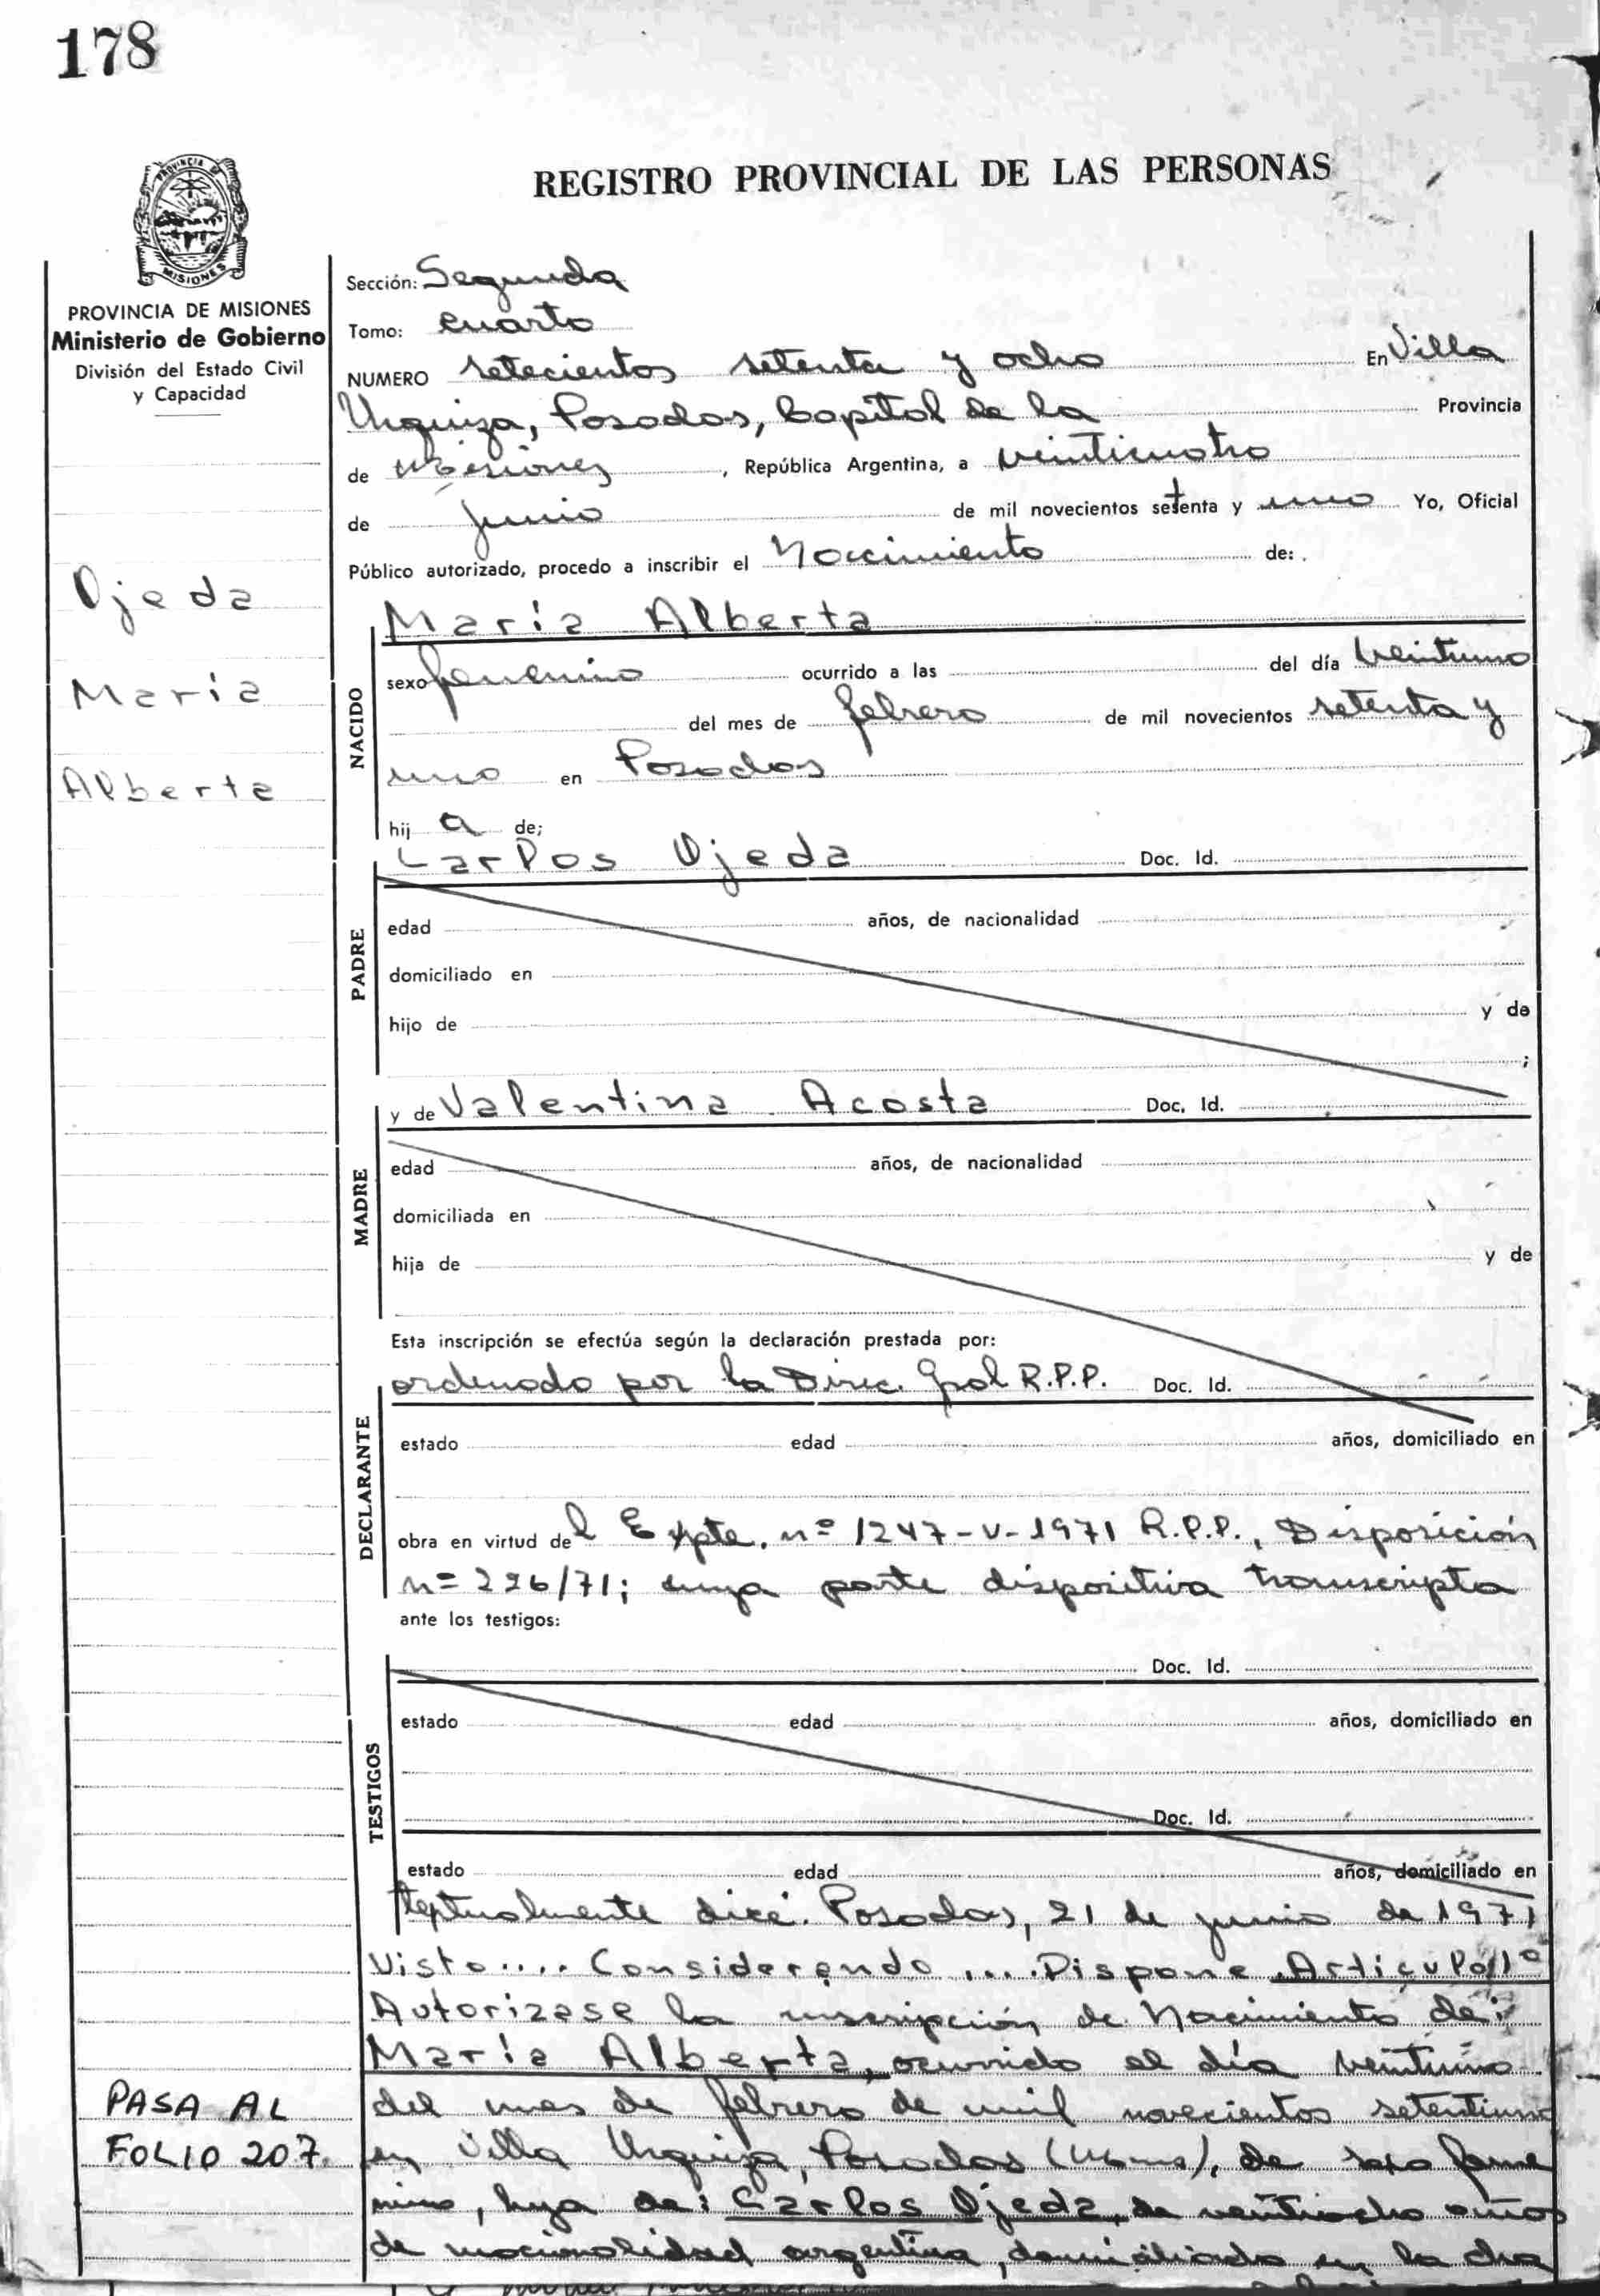 178
REGISTRO PROVINCIAL DE LAS PERSONAS
PROVINCIA DE
MISIONES
PROVINCIA DE MISIONES
Ministerio de Gobierno
División del Estado Civil
y Capacidad
Ojeda
María
Alberta
PASA AL
FOLIO 207.
Sección: Segunda
Tomo: cuarto
NUMERO setecientos setenta y ocho En Villa
Urquiza, Posadas, Capital de la Provincia
de Misiones, República Argentina, a veinticuatro
de junio de mil novecientos setenta y uno Yo, Oficial
Público autorizado, procedo a inscribir el Nacimiento de:
María Alberta
NACIDO
sexo femenino ocurrido a las del día veintiuno
del mes de febrero de mil novecientos setenta y
uno en Posadas
hij a de;
Carlos Ojeda Doc. Id.
PADRE
edad años, de nacionalidad
domiciliado en
hijo de y de
;
y de Valentina Acosta Doc. Id.
MADRE
edad años, de nacionalidad
domiciliada en
hija de y de
Esta inscripción se efectúa según la declaración prestada por:
ordenado por la Direc. Gral R.P.P. Doc. Id.
DECLARANTE
estado edad años, domiciliado en
obra en virtud del Expte. nº 1247-V-1971 R.P.P., Disposición
nº 226/71; cuya parte dispositiva transcripta
ante los testigos:
Doc. Id.
TESTIGOS
estado edad años, domiciliado en
Doc. Id.
estado edad años, domiciliado en
textualmente dice: Posadas, 21 de junio de 1971
Visto.... Considerando .... Dispone Artículo 1º
Autorizase la inscripción de Nacimiento de:
María Alberta, ocurrido el día veintiuno
del mes de febrero de mil novecientos setentiuno
en Villa Urquiza, Posadas (Mnes), de sexo feme
nino, hija de: Carlos Ojeda, de veintiocho años
de nacionalidad argentina, domiciliado en la